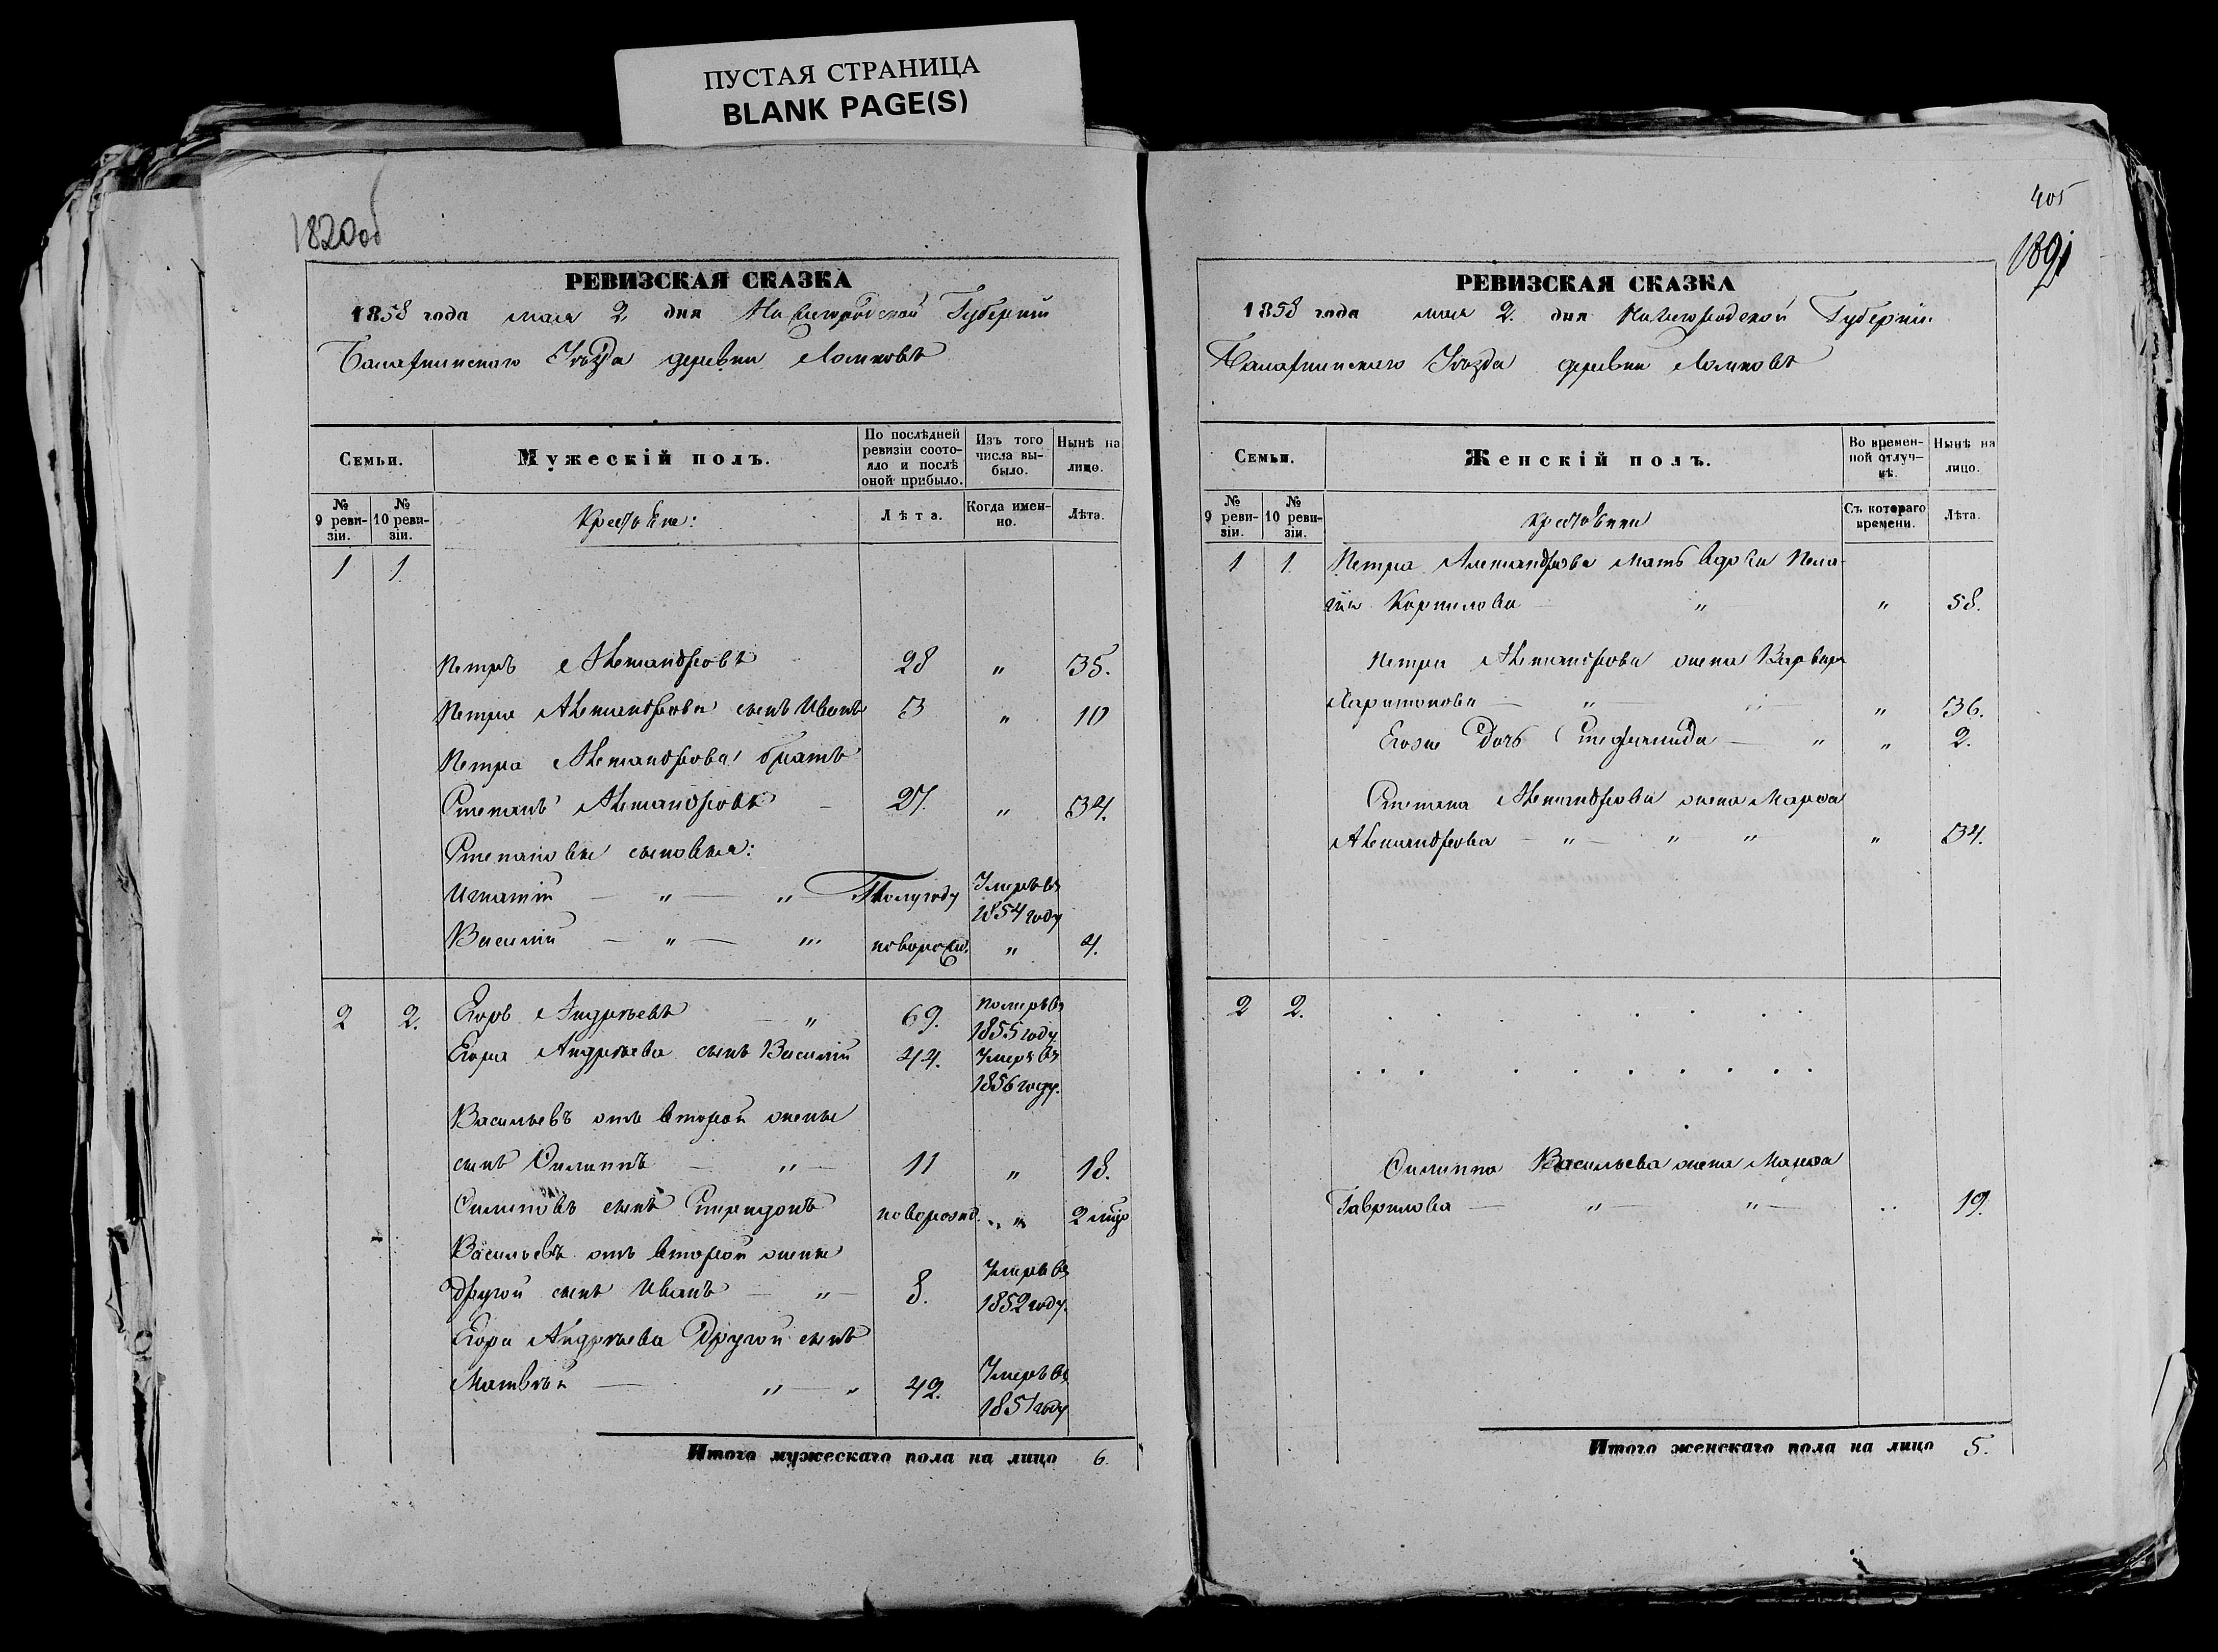 ПУСТАЯ СТРАНИЦА
BLANK PAGE(S)
1820 об
РЕВИЗСКАЯ СКАЗКА
1858 года мая 2 дня Нижегородской Губерніи
Балахнинскаго Уѣзда деревни
Семьи.
Мужескій полъ.
По послѣдней ревизіи состояло и послѣ оной прибыло.
Изъ того числа выбыло.
Нынѣ на лицо.
№ 9 ревизіи.
№ 10 ревизіи.
Крестьяне:
Лѣта.
Когда именно.
Лѣта.
1 1
Петръ Александровъ 28 " 35.
Петра Александрова сынъ Иванъ 3 " 10
Петра Александрова братъ
Степанъ Александровъ - 27. " 34.
Степановы сыновья:
Игнатій — " — " Полугоду Умеръ въ 1854 году
Василій — " — " новорож. " 4.
2 2. Егоръ Андрѣевъ " 69. Померъ въ 1855 году
Егора Андрѣева сынъ Василій 44. Умеръ въ 1856 году.
Васильевъ отъ второй жены
сынъ Филиппъ — " — 11 " 18.
Филиповъ сынъ Спиридонъ новорожд. " "
Васильевъ отъ второй жены
другой сынъ Иванъ — " — 8. Умеръ въ 1852 году.
Егора Андрѣева другой сынъ
Матвѣй — " — " 42. Умеръ въ 1851 году
Итого мужескаго пола на лицо 6.
405
РЕВИЗСКАЯ СКАЗКА
1858 года мая 2. дня Нижегородской Губерніи
Балахнинскаго Уѣзда деревни
Семьи.
Женскій полъ.
Во временной отлучкѣ.
Нынѣ на лицо.
№ 9 ревизіи.
№ 10 ревизіи.
Крестьянки
Съ котораго времени.
Лѣта.
1 1. Петра Александрова мать вдова Пела-
гія Корнилова — " " 58.
Петра Александрова жена Варвара
Харитонова — " — " " 36.
Егоже дочь Стефанида — " " 2.
Степана Александрова жена Марфа
Александрова — " — " " " 34.
2 2.
Филиппа Васильева жена Марфа
Гаврилова — " — " — " 19.
Итого женскаго пола на лицо 5.